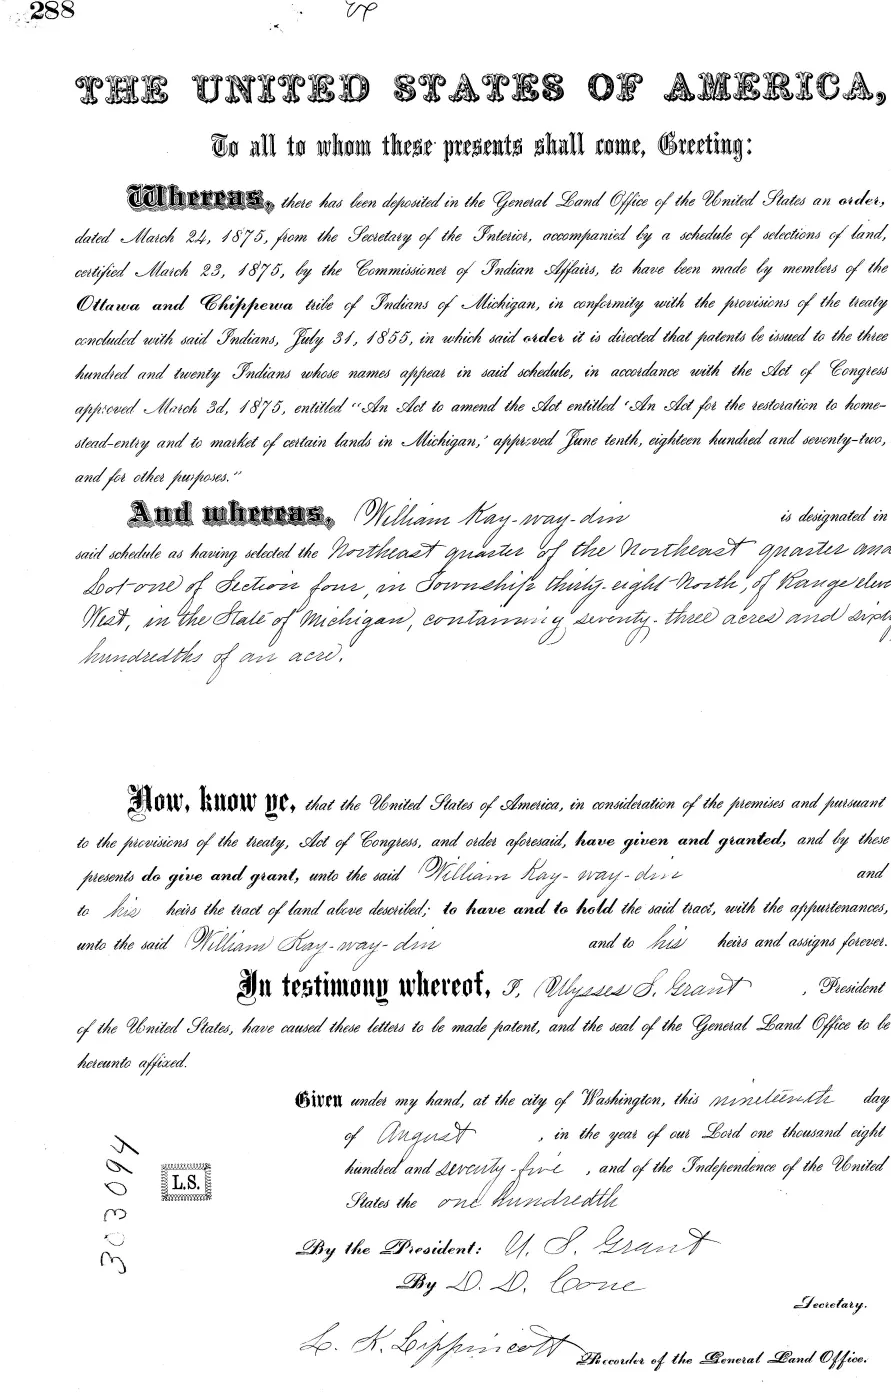 288
THE UNITED STATES OF AMERICA,
To all to whom these presents shall come, Greeting:
Whereas, there has been deposited in the General Land Office of the United States an order,
dated March 24, 1875, from the Secretary of the Interior, accompanied by a schedule of selections of land,
certified March 23, 1875, by the Commissioner of Indian Affairs, to have been made by members of the
Ottawa and Chippewa tribe of Indians of Michigan, in conformity with the provisions of the treaty
concluded with said Indians, July 31, 1855, in which said order it is directed that patents be issued to the three
hundred and twenty Indians whose names appear in said schedule, in accordance with the Act of Congress
approved March 3d, 1875, entitled "An Act to amend the Act entitled 'An Act for the restoration to home-
stead-entry and to market of certain lands in Michigan,' approved June tenth, eighteen hundred and seventy-two,
and for other purposes."
And whereas, William Kay-way-din is designated in
said schedule as having selected the Northeast quarter of the Northeast quarter and
Lot one of Section four, in Township thirty-eight North, of Range elev
West, in the State of Michigan, containing seventy-three acres and sixty
hundredths of an acre.
Now, know ye, that the United States of America, in consideration of the premises and pursuant
to the provisions of the treaty, Act of Congress, and order aforesaid, have given and granted, and by these
presents do give and grant, unto the said William Kay-way-din and
to his heirs the tract of land above described; to have and to hold the said tract, with the appurtenances,
unto the said William Kay-way-din and to his heirs and assigns forever.
In testimony whereof, I, Ulysses S. Grant, President
of the United States, have caused these letters to be made patent, and the seal of the General Land Office to be
hereunto affixed.
Given under my hand, at the city of Washington, this nineteenth day
of August, in the year of our Lord one thousand eight
hundred and seventy-five, and of the Independence of the United
States the one hundredth
303094
L.S.
By the President: U. S. Grant
By D. D. Cone
Secretary.
L. K. Lippincott
Recorder of the General Land Office.